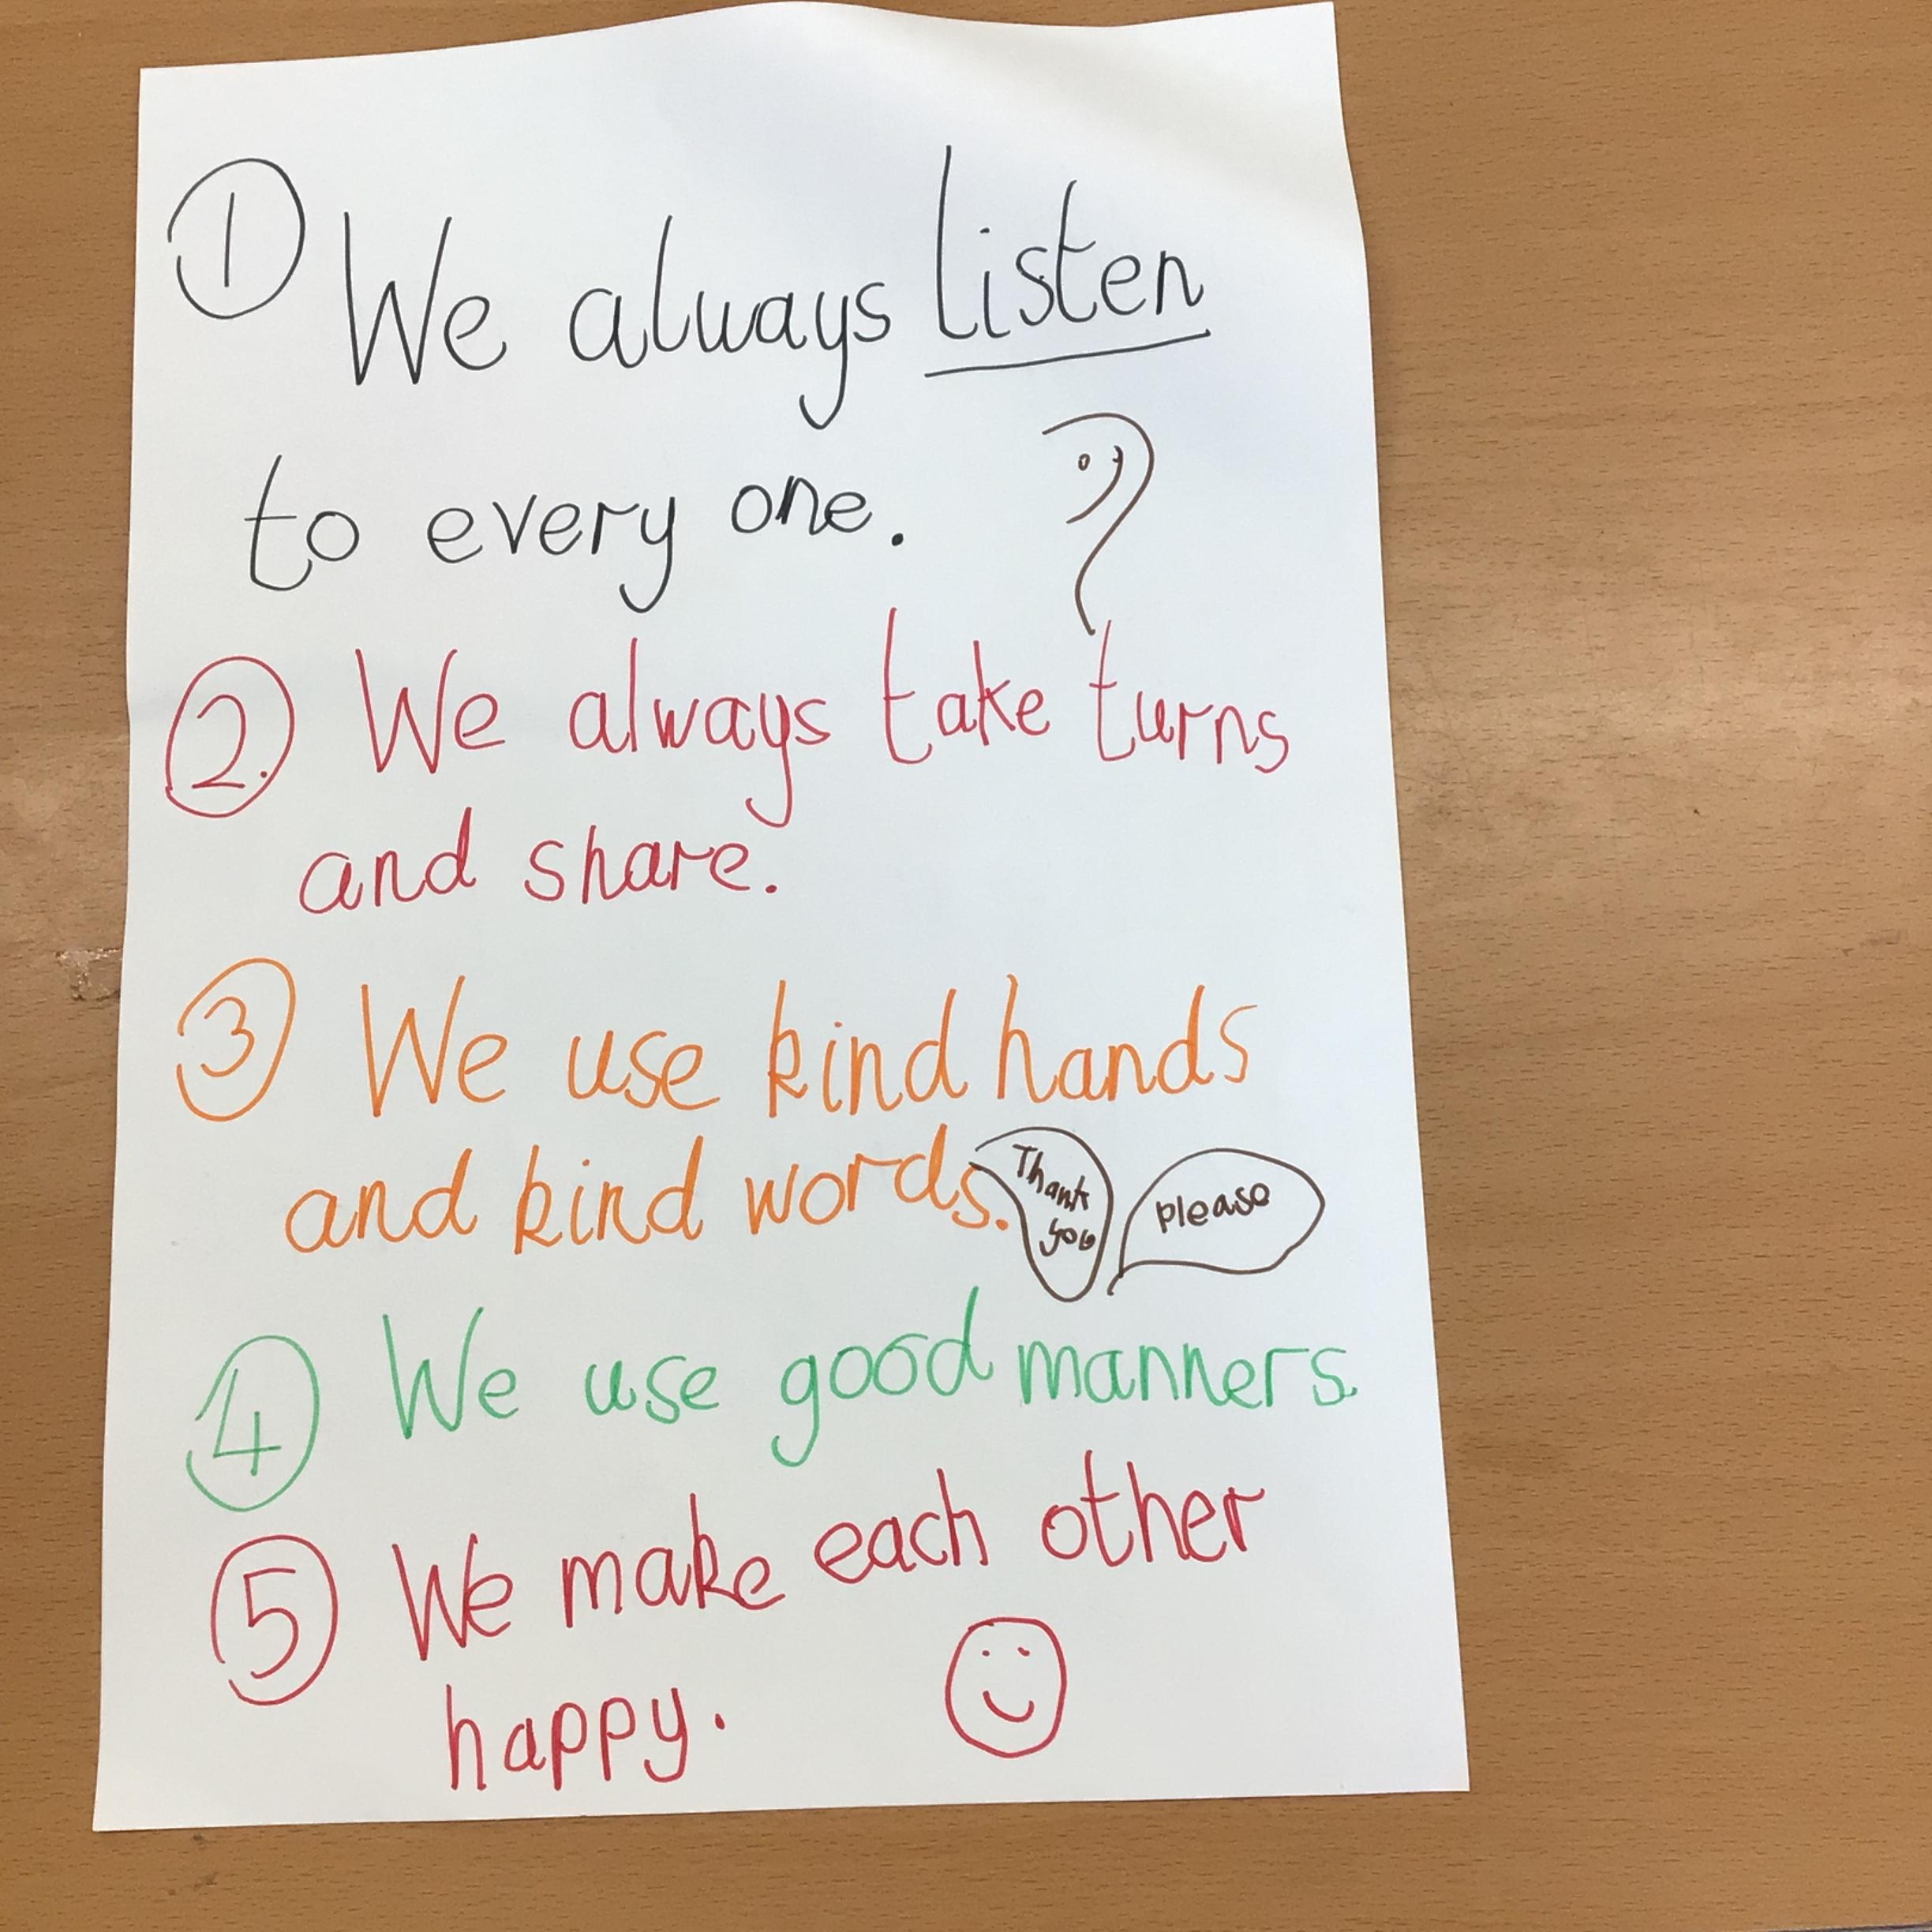 ① We always listen
to every one.
② We always take turns
and share.
③ We use kind hands
and kind words.
Thank
you
please
④ We use good manners.
⑤ We make each other
happy.